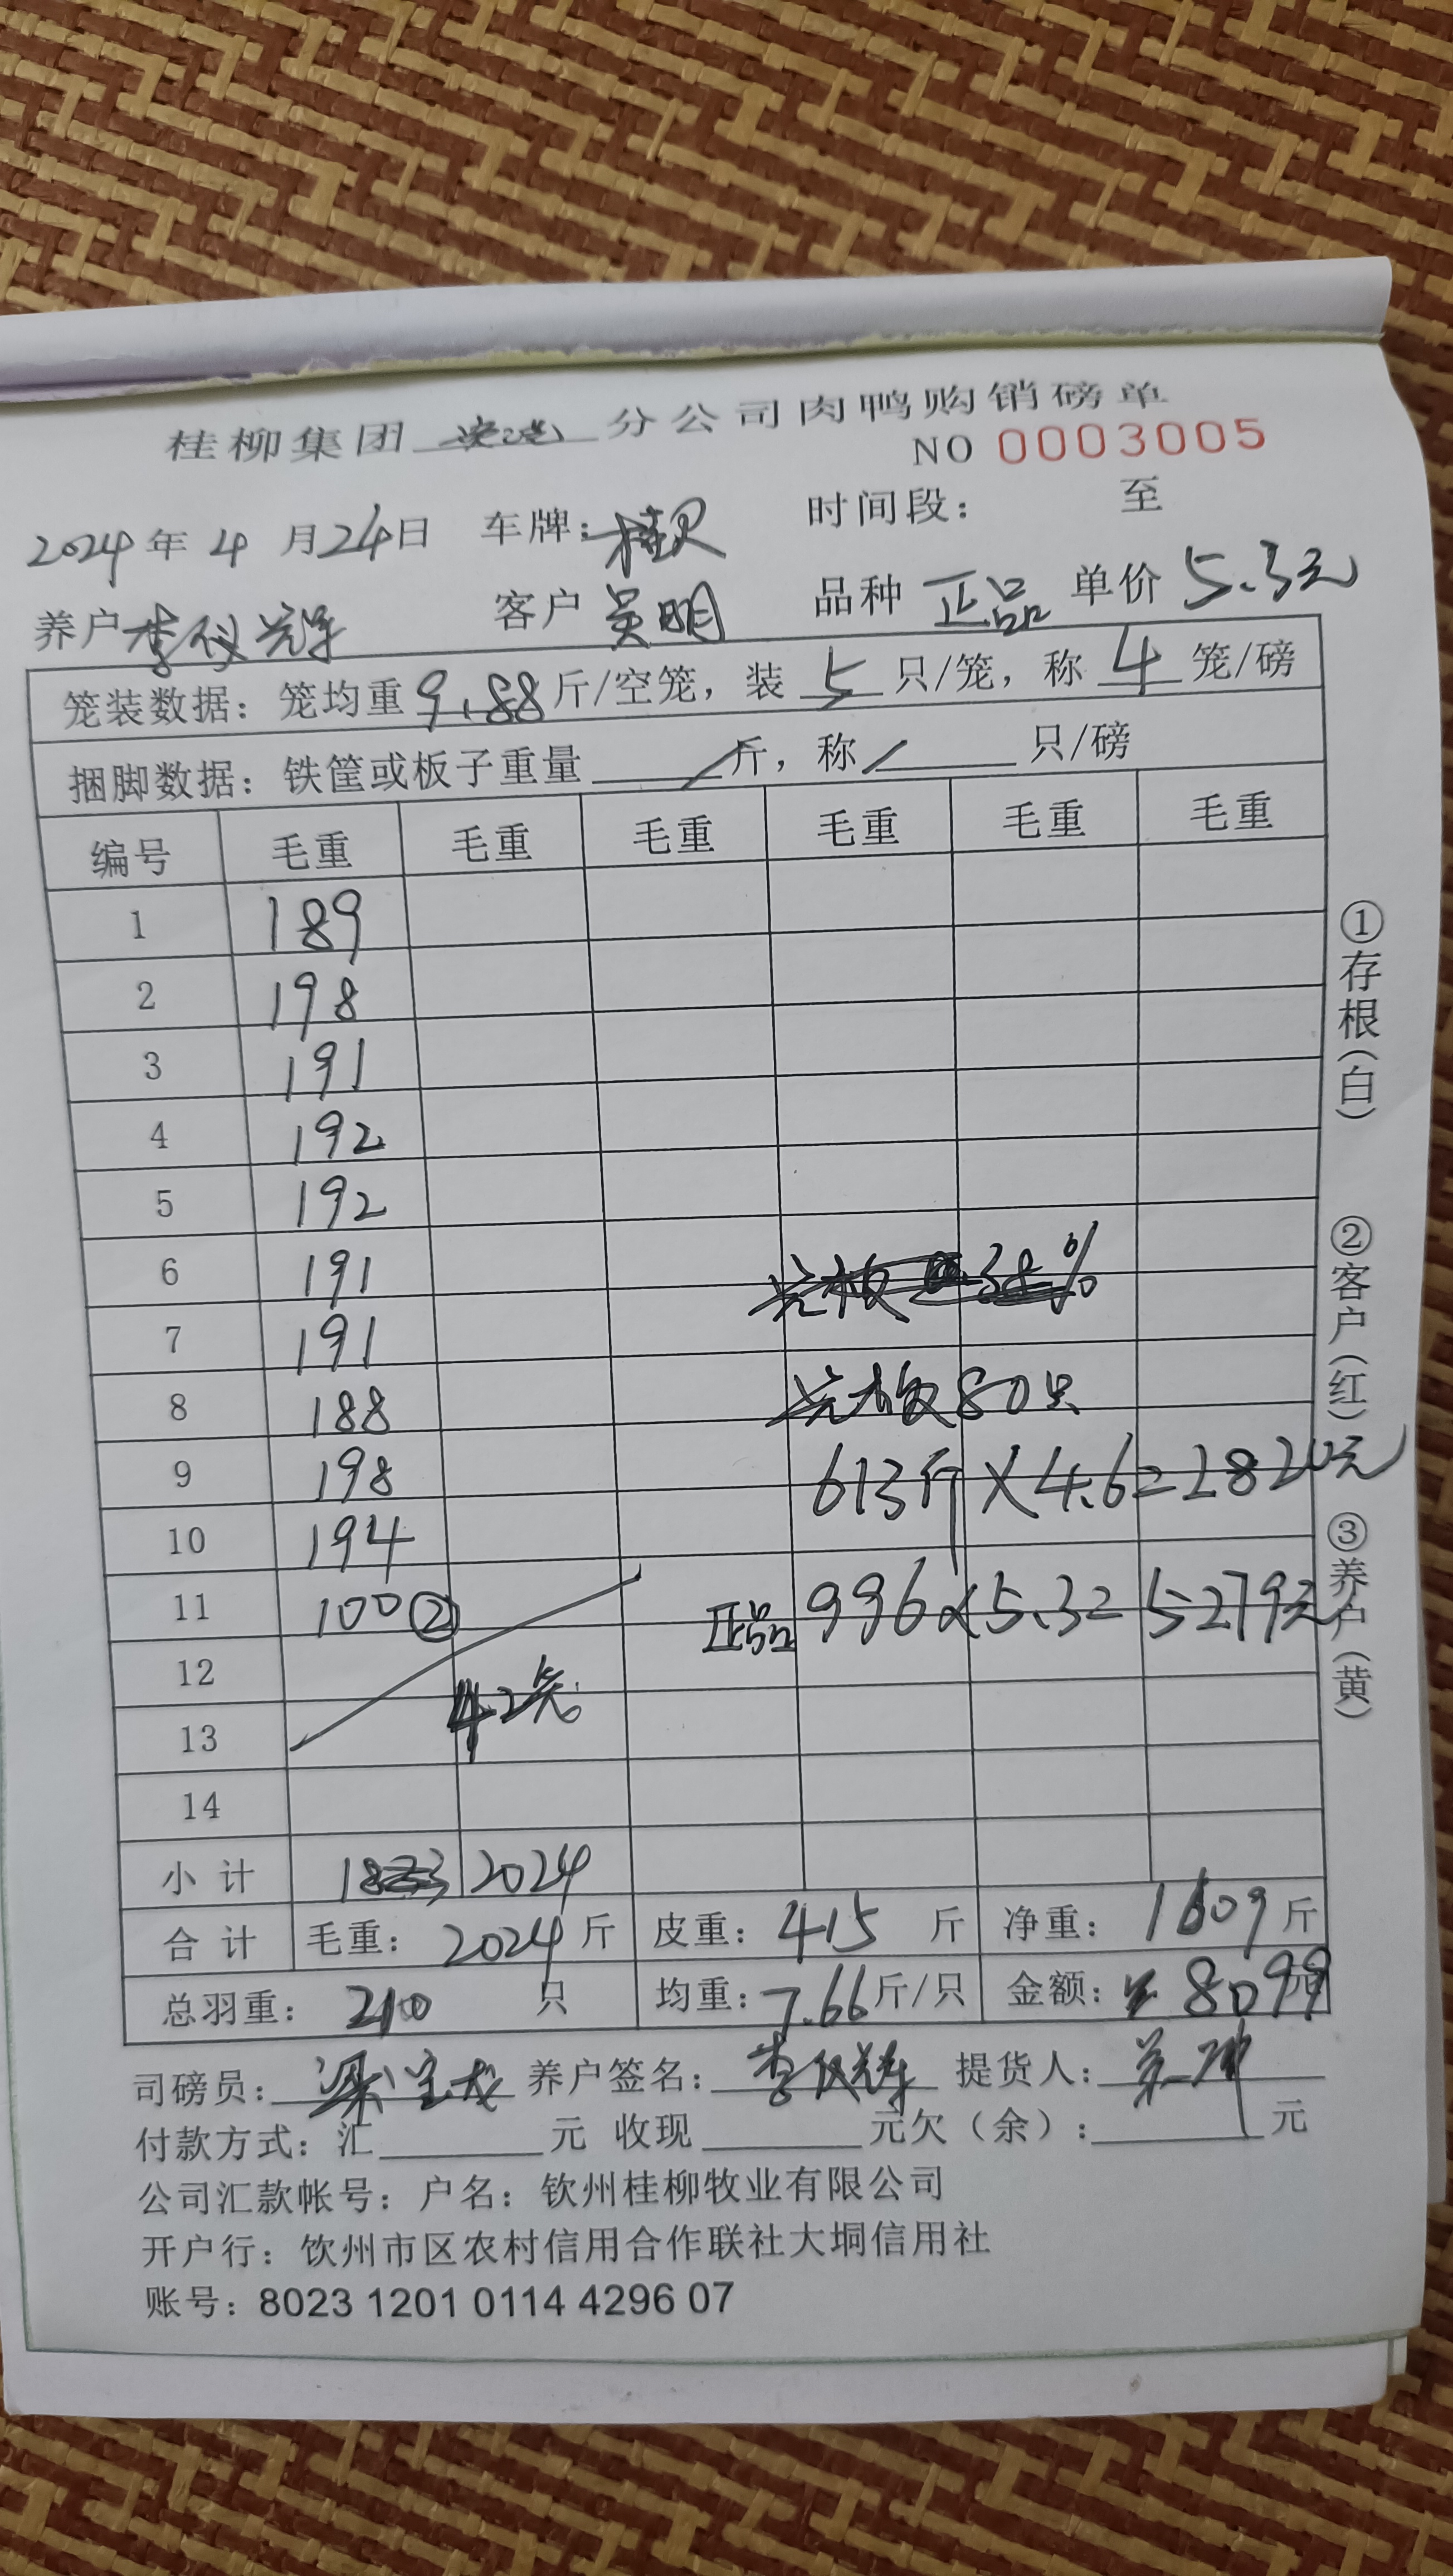 桂柳集团 分公司肉鸭购销磅单
NO 0003005
2024年 4 月24日 车牌: 时间段: 至
养户 李仪辉 客户 吴明 品种 正品 单价 5.3元
笼装数据: 笼均重 9.88 斤/空笼, 装 5 只/笼, 称 4 笼/磅
捆脚数据: 铁筐或板子重量 / 斤, 称 / 只/磅
编号 毛重 毛重 毛重 毛重 毛重 毛重
1 189
2 198
3 191
4 192
5 192
6 191 38%
7 191
8 188 80只
9 198 613斤×4.6=2820元
10 194
11 100② 正品 996×5.3=5279元
12 42
13
14
小计 2024
合计 毛重: 2024 斤 皮重: 415 斤 净重: 1609 斤
总羽重: 210 只 均重: 7.66 斤/只 金额: ¥8099元
司磅员: 养户签名: 李仪辉 提货人:
付款方式: 汇 元 收现 元欠(余): 元
公司汇款帐号: 户名: 钦州桂柳牧业有限公司
开户行: 饮州市区农村信用合作联社大垌信用社
账号: 8023 1201 0114 4296 07
①存根(白) ②客户(红) ③养户(黄)